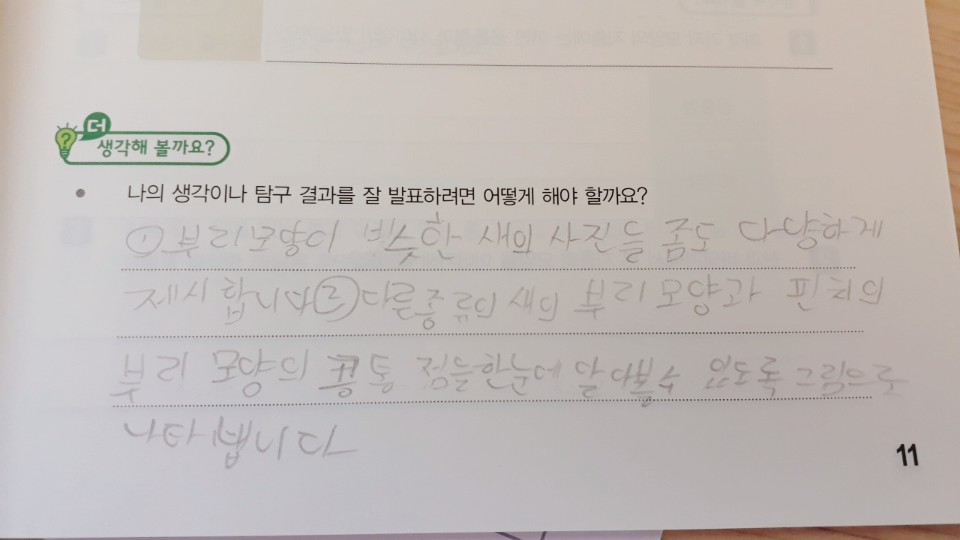 더
생각해 볼까요?
• 나의 생각이나 탐구 결과를 잘 발표하려면 어떻게 해야 할까요?
① 부리모양이 비슷한 새의 사진들 좀도 다양하게
제시 합니다 ② 다른종류의 새의 부리 모양과 핀치의
부리 모양의 공통 점을한눈에 알아볼수 있도록 그림으로
나타냅니다
11